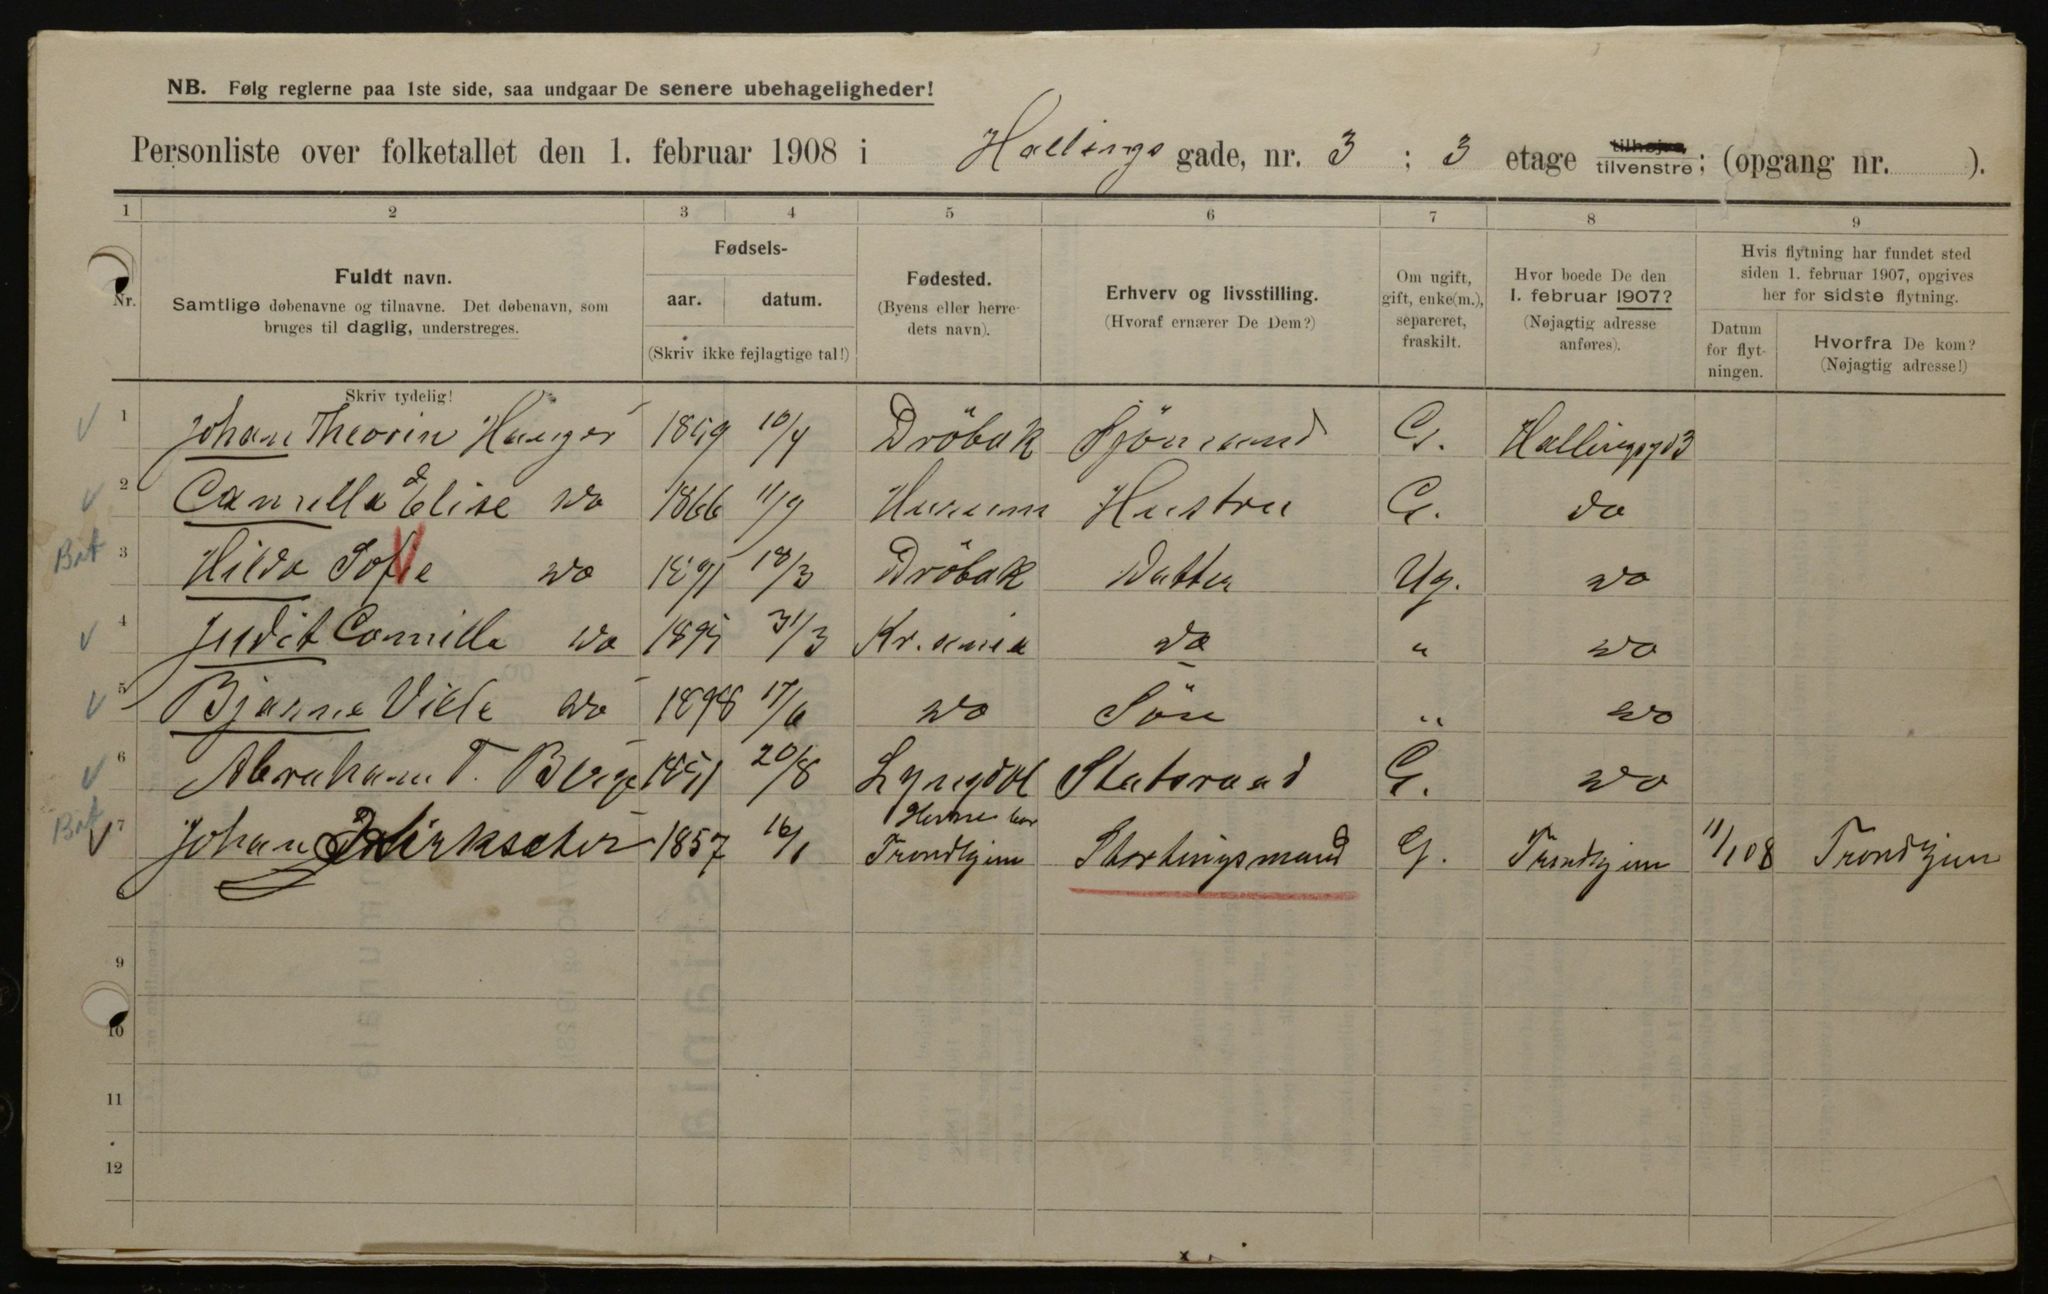 NB. Følg reglerne paa 1ste side, saa undgaar De senere ubehageligheder!
Personliste over folketallet den 1. februar 1908 i Hallings gade, nr. 3 ; 3 etage tilhøjre tilvenstre ; (opgang nr. ).
1 2 3 4 5 6 7 8 9
Nr.
Fuldt navn.
Samtlige døbenavne og tilnavne. Det døbenavn, som
bruges til daglig, understreges.
Fødsels-
aar. datum.
(Skriv ikke fejlagtige tal!)
Fødested.
(Byens eller herre-
dets navn).
Erhverv og livsstilling.
(Hvoraf ernærer De Dem?)
Om ugift,
gift, enke(m.),
separeret,
fraskilt.
Hvor boede De den
1. februar 1907?
(Nøjagtig adresse
anføres).
Hvis flytning har fundet sted
siden 1. februar 1907, opgives
her for sidste flytning.
Datum
for flyt-
ningen.
Hvorfra De kom?
(Nøjagtig adresse!)
Skriv tydelig!
1 Johan Theorin 1859 10/4 Dröbak Sjömand G. Hallingsgd 3
2 Camilla Elise do 1866 11/9 Hurum Hustru G. do
3 Hilda Sofie do 1891 18/3 Dröbak Datter Ug. do
4 Judit Camilla do 1895 31/3 Kr.ania do " do
5 Bjarne do 1898 17/6 do Sön " do
6 Abraham T. Berge 1851 20/8 Lyngdal Statsraad G. do
7 Johan 1857 16/1 Trondhjem Stortingsmand G. Trondhjem 11/1 08 Trondhjem
9
10
11
12